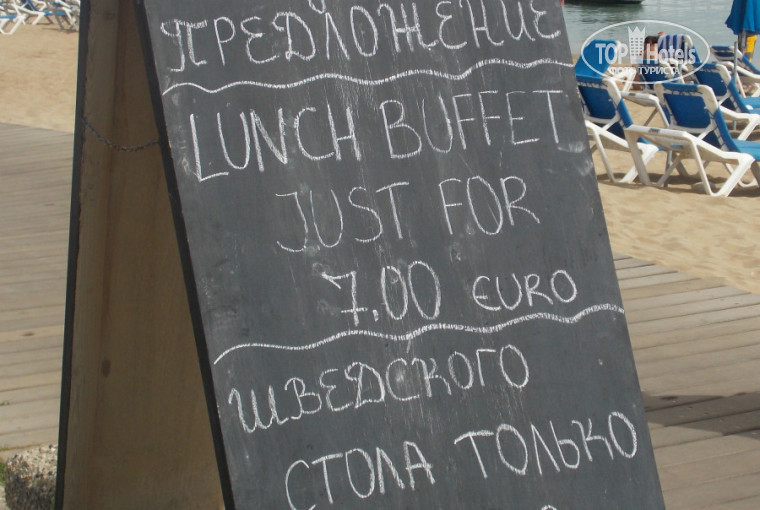 ПРЕДЛОЖЕНИЕ
LUNCH BUFFET
JUST FOR
7.00 EURO
ШВЕДСКОГО
СТОЛА ТОЛЬКО
TOPHotels
ФОНД ТУРИСТА